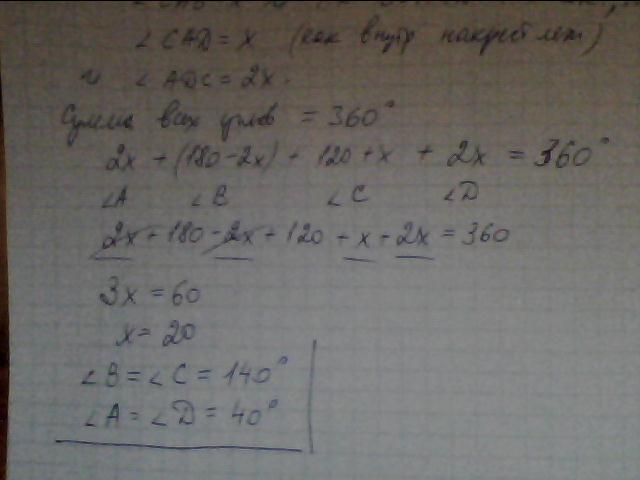 ∠CAD = x (как внутр накрест леж)
и ∠ADC = 2x.
Сумма всех углов = 360°
2x + (180-2x) + 120 + x + 2x = 360°
∠A ∠B ∠C ∠D
2x + 180 - 2x + 120 + x + 2x = 360
3x = 60
x = 20
∠B = ∠C = 140°
∠A = ∠D = 40°